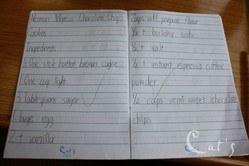 Women Whoa Chocolate Chip
Cookies
Ingredients
One stick butter brown sugar
One cup light
3 Tablespoons sugar
1 large egg
2 t vanilla
cups all purpose flour
t baking soda
t salt
t instant espresso coffee
powder
1/2 cups semi sweet chocolate
chips
Cat's
Cat's